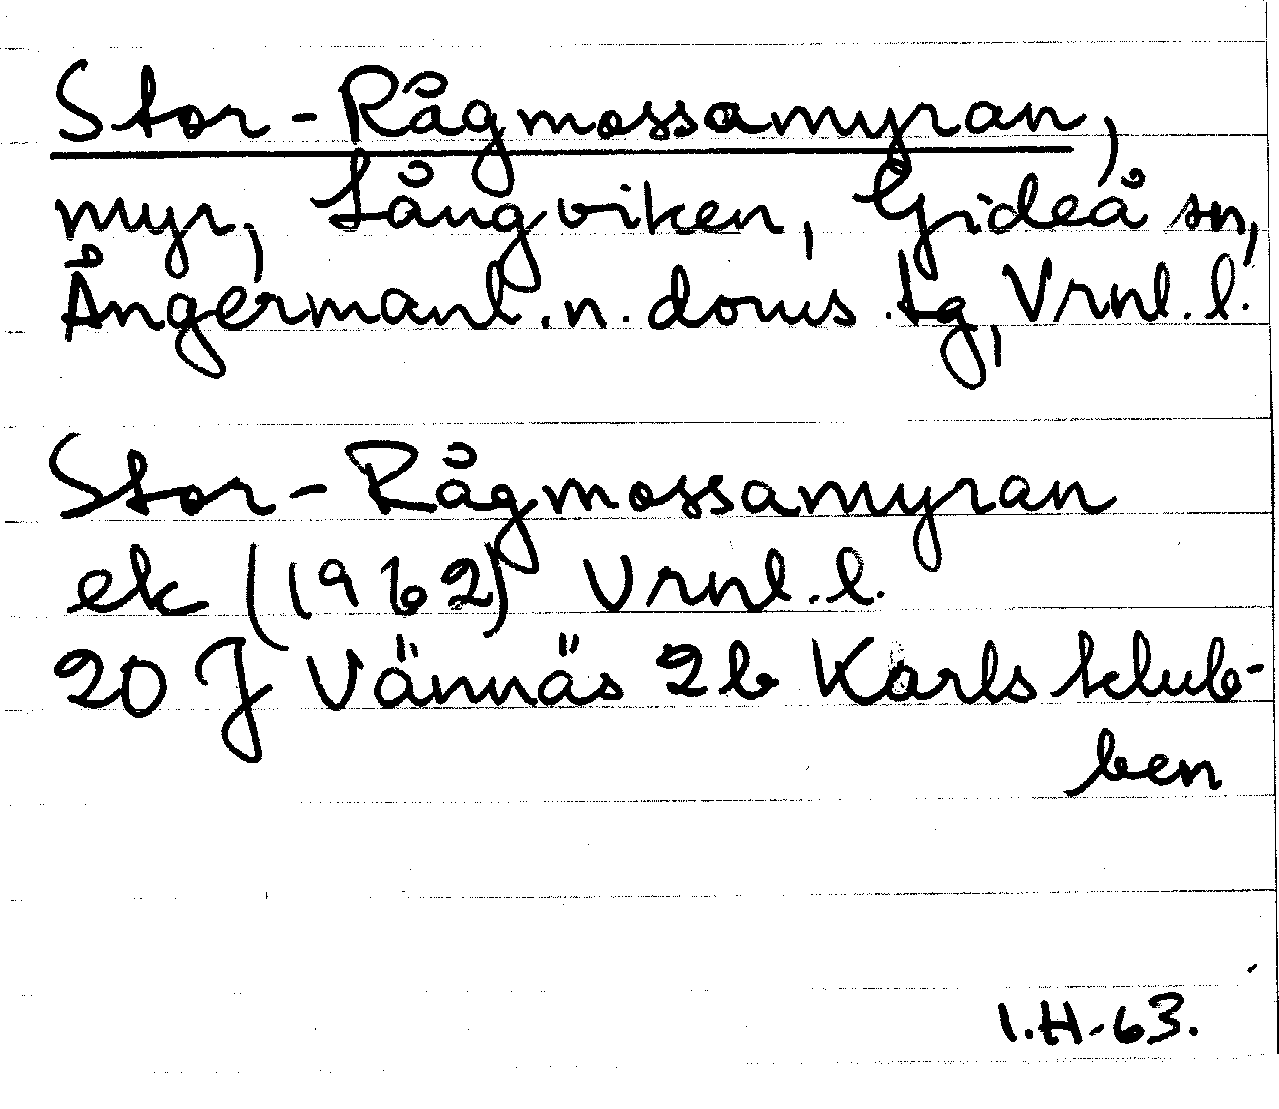 Stor-Rågmossamyran,
myr, Långviken, Gideå sn,
Ångermanl. n. doms. tg, Vrnl. l.
Stor-Rågmossamyran
ek (1962) Vrnl. l.
20 J Vännäs 2b Karlsklub-
ben
I.H-63.